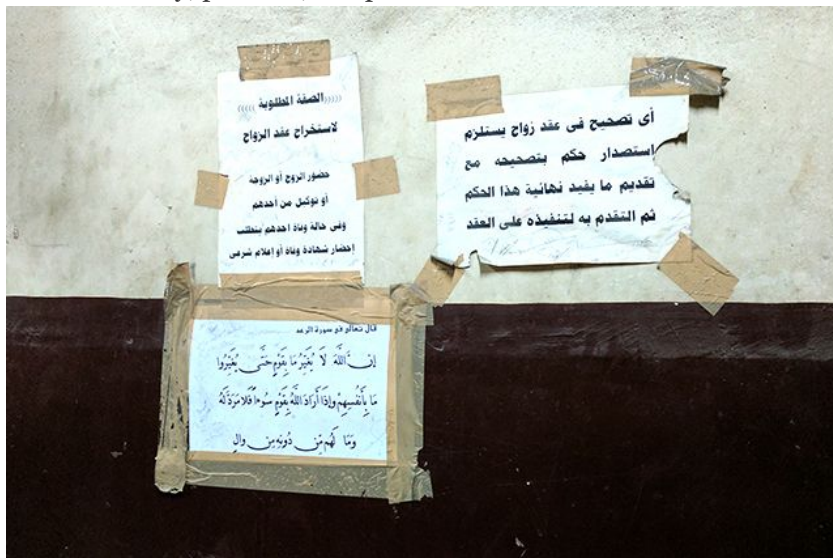 (((((الصفة المطلوبة)))))
لاستخراج عقد الزواج
حضور الزوج أو الزوجة
أو توكيل من أحدهم
وفى حالة وفاة احدهم يتطلب
إحضار شهادة وفاة أو إعلام شرعى
أى تصحيح فى عقد زواج يستلزم
استصدار حكم بتصحيحه مع
تقديم ما يفيد نهائية هذا الحكم
ثم التقدم به لتنفيذه على العقد
قال تعالى فى سورة الرعد
إِنَّ اللَّهَ لَا يُغَيِّرُ مَا بِقَوْمٍ حَتَّى يُغَيِّرُوا
مَا بِأَنفُسِهِمْ وَإِذَا أَرَادَ اللَّهُ بِقَوْمٍ سُوءًا فَلَا مَرَدَّ لَهُ
وَمَا لَهُم مِّن دُونِهِ مِن وَالٍ